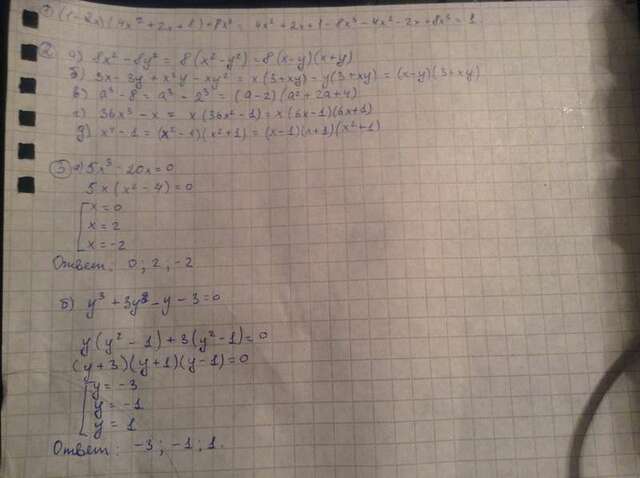 1) (1-2x)(4x²+2x+1)+8x³ = 4x²+2x+1-8x³-4x²-2x+8x³ = 1
2) а) 8x²-8y² = 8(x²-y²) = 8(x-y)(x+y)
б) 3x-3y+x²y-xy² = x(3+xy)-y(3+xy) = (x-y)(3+xy)
в) a³-8 = a³-2³ = (a-2)(a²+2a+4)
г) 36x³-x = x(36x²-1) = x(6x-1)(6x+1)
д) x⁴-1 = (x²-1)(x²+1) = (x-1)(x+1)(x²+1)
3) а) 5x³-20x=0
5x(x²-4)=0
x=0
x=2
x=-2
Ответ: 0; 2; -2
б) y³+3y²-y-3=0
y(y²-1)+3(y²-1)=0
(y+3)(y+1)(y-1)=0
y=-3
y=-1
y=1
Ответ: -3; -1; 1.